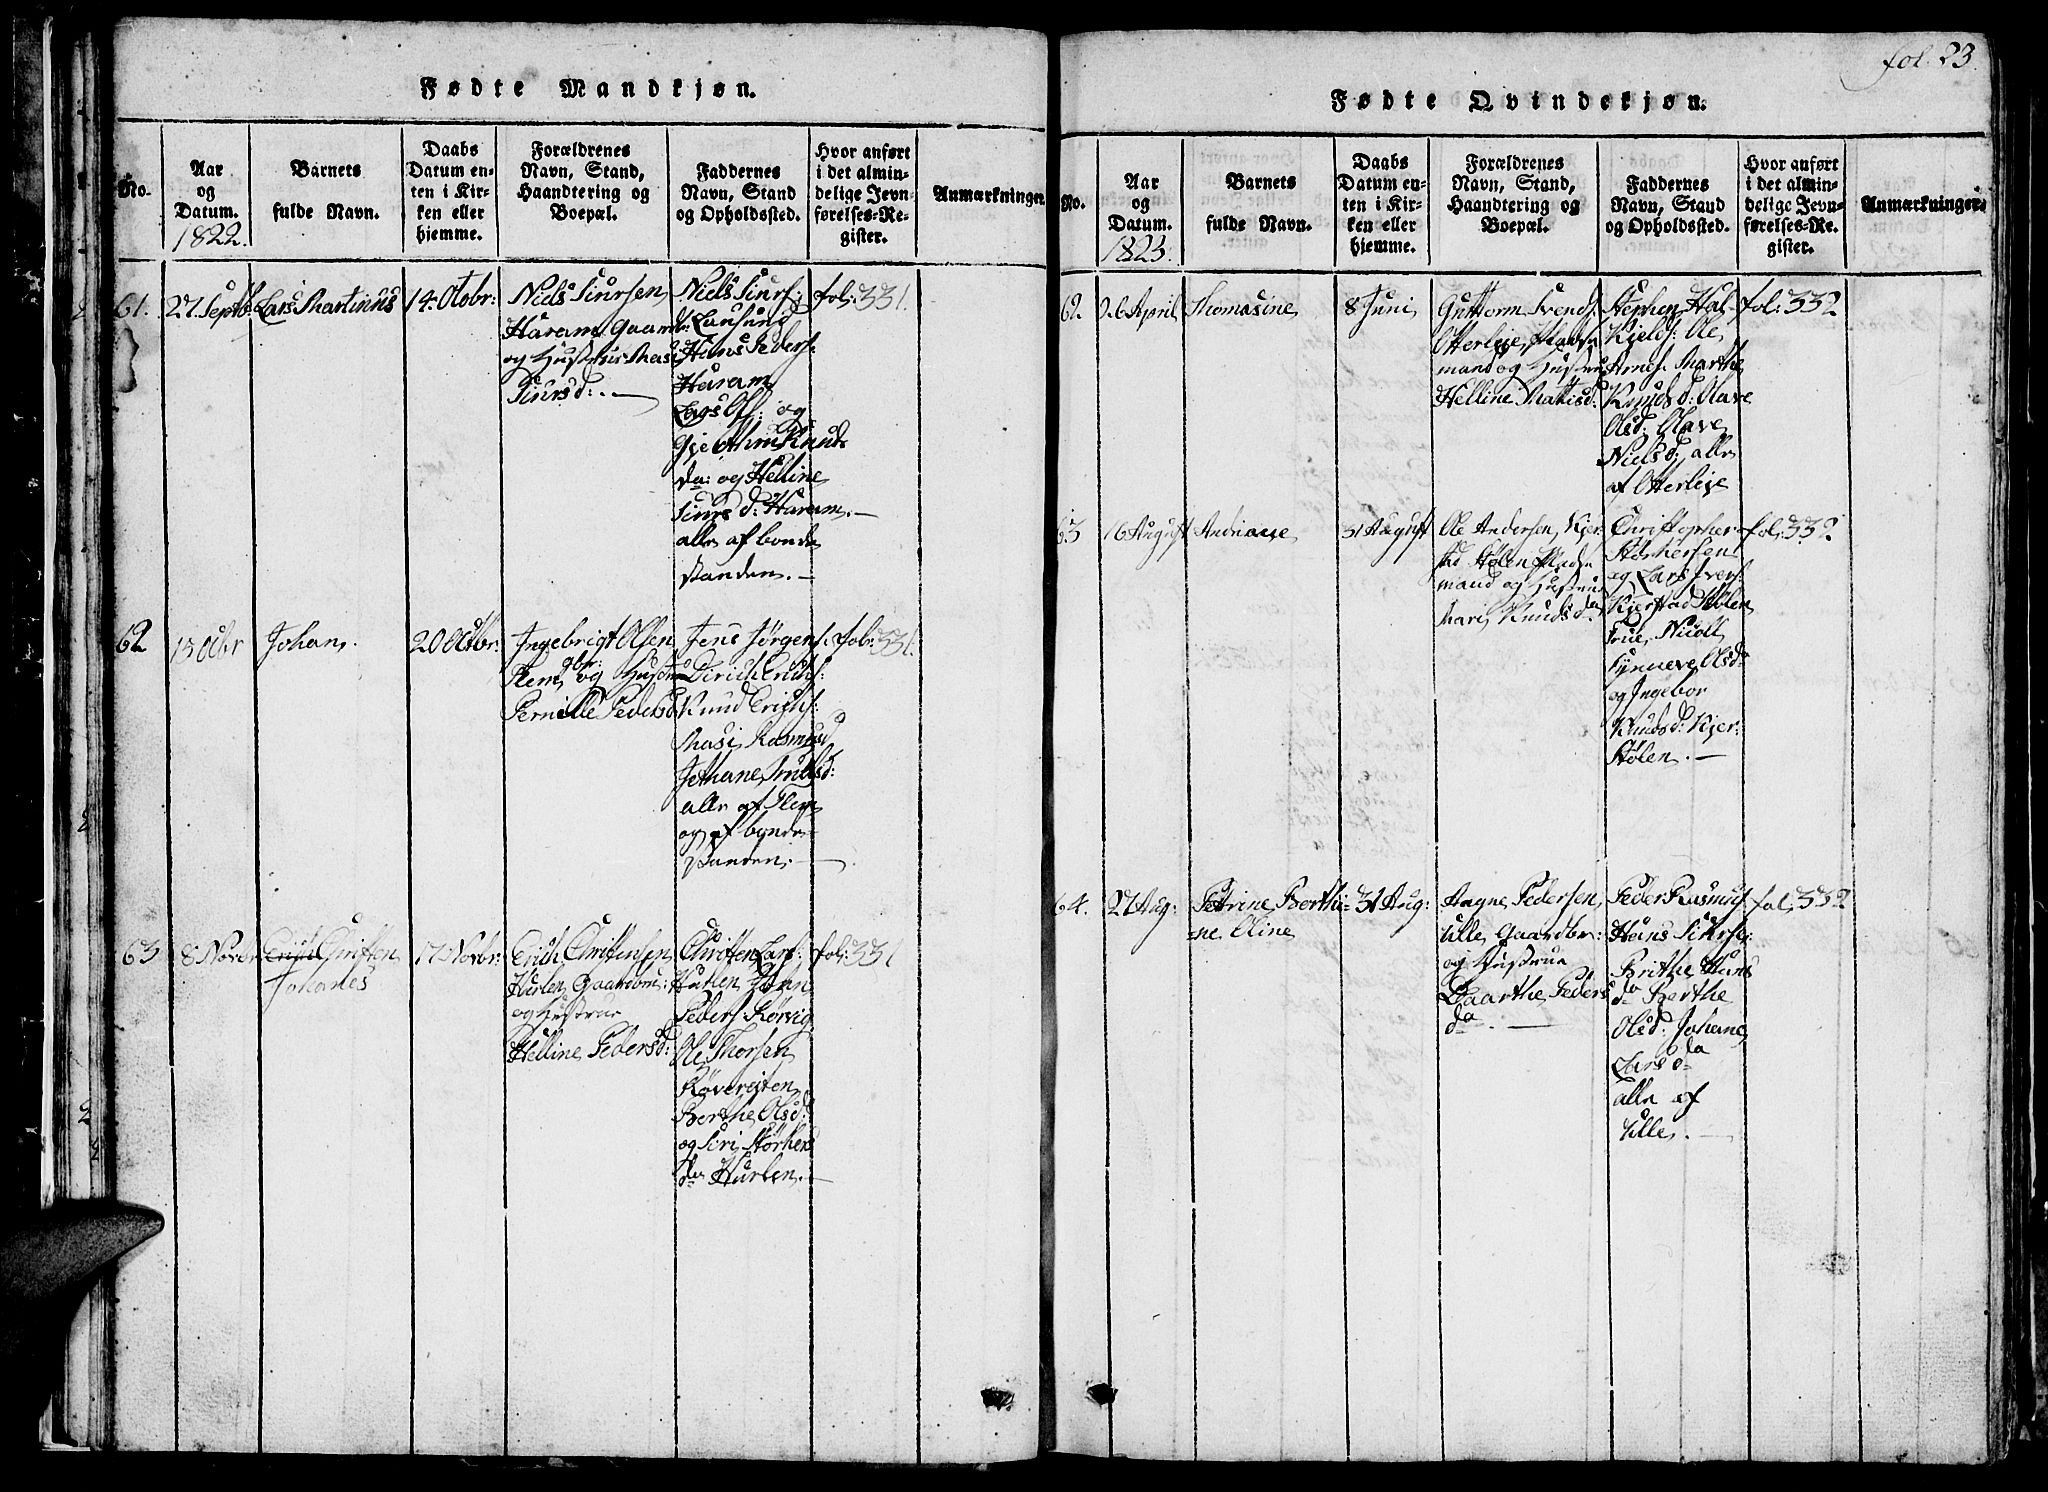 fol. 23
Fødte Mandkjøn.
No.
Aar
og
Datum.
1822.
Barnets
fulde Navn.
Daabs
Datum en-
ten i Kir-
ken eller
hjemme.
Forældrenes
Navn, Stand,
Haandtering og
Boepæl.
Faddernes
Navn, Stand
og Opholdssted.
Hvor anført
i det almin-
delige Jevn-
førelses-Re-
gister.
Anmærkninger.
61.
27. Septb.
Lars Martinus
14 Otobr:
Niels Siursen
Haram Gaardb:
og Hustrue Masi
Siursd:.
Niels Siurs:
Hans Peders:
Haram
og
Knuds
da: og Helline
Siurs d: Haram.
alle af bonde
standen.
fol: 331.
62
13 Octbr
Johan.
20 Octbr:
Ingebrigt Olsen
Flem gbr: og Hustru
Pernille Pedersd
Jens Jørgens:
Dirich Erichs:
Knud Erichs:
Masi Rasmusd
Johane Knudsd:
alle af Flem
og af bonde-
standen.
fol: 331.
63
8 Novbr
Christen
Johanes
17 Novbr:
Erich Christensen
Hurlen Gaardbm:
og Hustrue
Helline Pedersd:
Christen Lars:
Hurlen John
Peders Rørvig
Ole Thorsen
Røverejten
Berthe Olsd:
og Siri Størkers
da Hurlen.
fol: 331
Fødte Qvindekjøn.
No.
Aar
og
Datum.
1823.
Barnets
fulde Navn.
Daabs
Datum en-
ten i Kir-
ken eller
hjemme.
Forældrenes
Navn, Stand,
Haandtering og
Boepæl.
Faddernes
Navn, Stand
og Opholdssted.
Hvor anført
i det almin-
delige Jevn-
førelses-Re-
gister.
Anmærkninger.
62.
26 April
Thomasine
8 Juni
Guttorm Svends:
Otterleje Pladse
mand og Hustrue
Helline Matisd:
Stephen Hal-
Kields: Ole
Arnes: Marthe
Knudsd: Olave
Olsd: Olave
Nielsd: alle
af Otterleje
fol: 332
63
16 August
Andriane
31 August
Ole Andersen Kjer-
stad Hølen Pladse
mand og Hustrue
Mari Knudsda
Christopher
Størkersen
og Lars Ivers:
Kjerstad Hølen
Frue Nicoll
Synneve Olsda
og Ingebor
Knudsd: Kjer:
Hølen.
fol: 332
64.
27 Aug:
Petrine Berthi-
ne Oline
31 Aug:
Aagne Pedersen
Ulle Gaardbr:
og Hustrue
Baarthe Peders
da.
Peder Rasmus:
Hans Siurse:
Brithe Hans
da Berthe
Olsd: Johane
Larsda
alle af
Ulle.
fol: 332